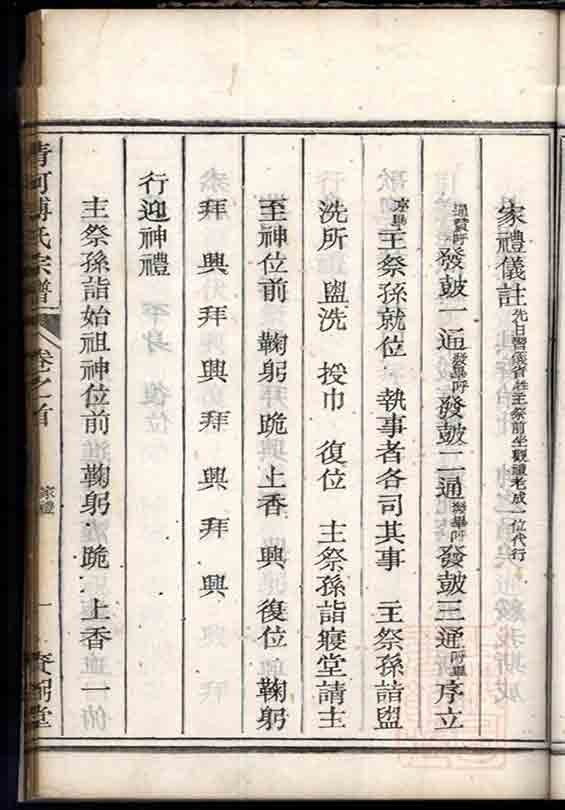 家禮儀註先日習儀省牲主祭前坐觀議老成一位代行
通贊呼發鼓一通發畢呼發鼓二通發畢呼發鼓三通呼畢序立
序畢主祭孫就位 執事者各司其事 主祭孫詣盥
洗所 盥洗 授巾 復位 主祭孫詣寢堂請主
至神位前 鞠躬 跪 上香 興 復位 鞠躬
拜 興 拜 興 拜 興 拜 興
行迎神禮
主祭孫詣始祖神位前 鞠躬 跪 上香 一
清河傅氏宗譜 卷之首 家禮 一